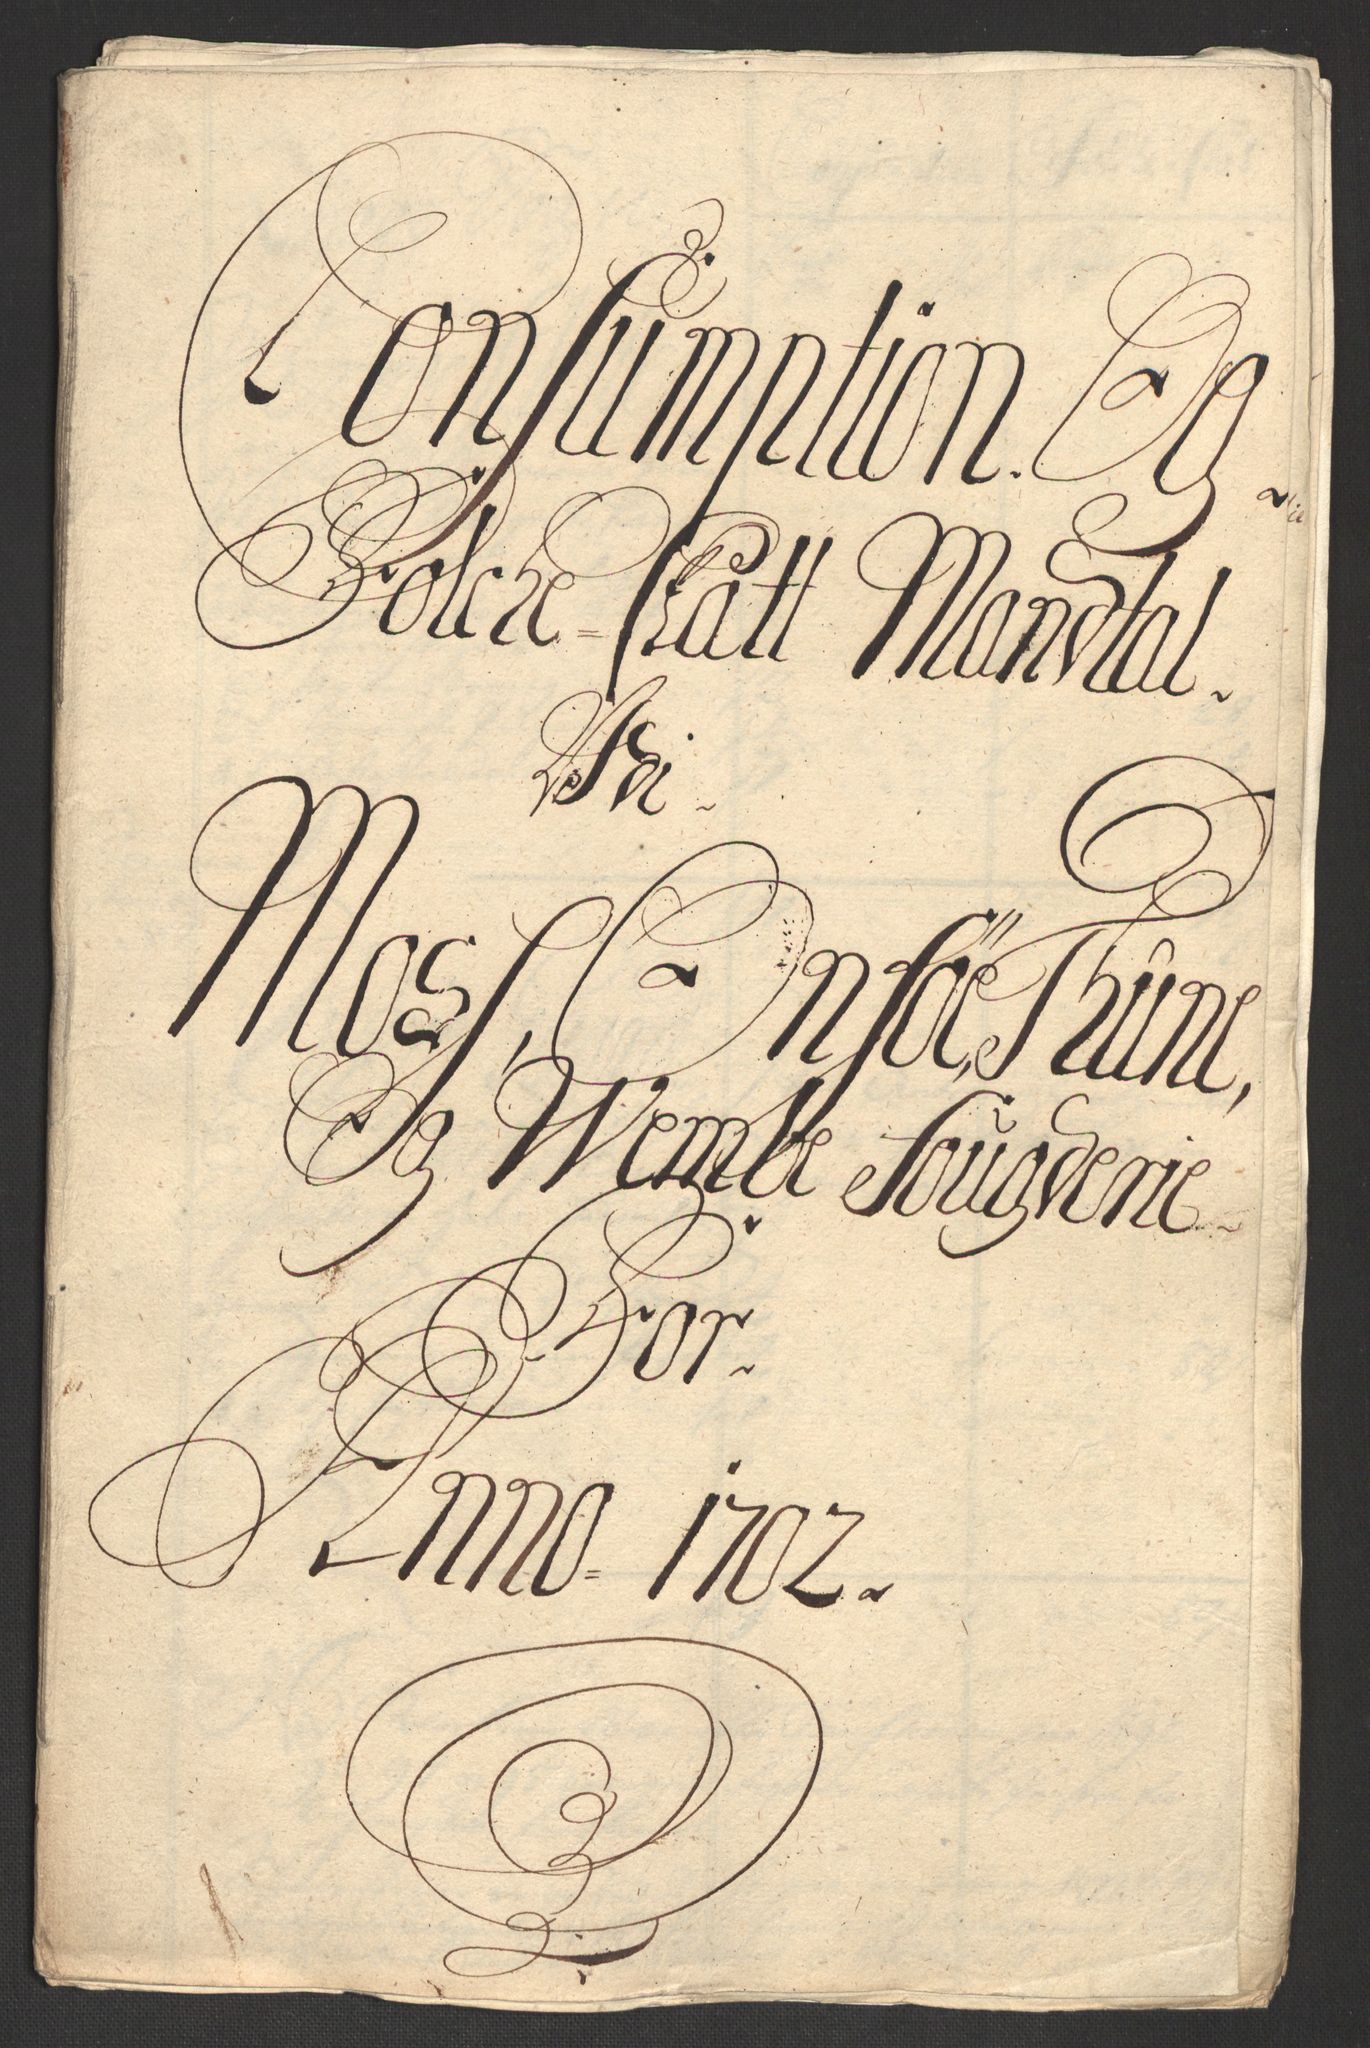 Consumption. Og
Folche-skatt Mandtal.
Udi
Moss, Onsöe, Thune,
Og Wembe Fougderie
For
Anno 1702.